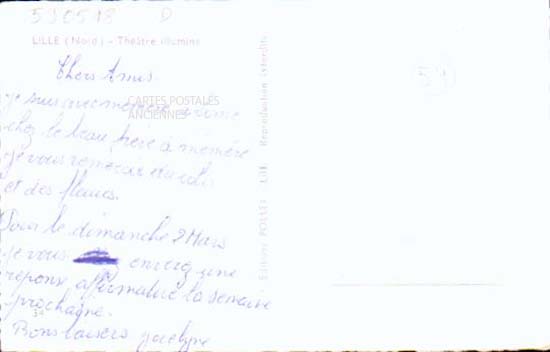 590518 D
LILLE (Nord) - Théâtre illuminé
Chers Amis.
je suis avec mémère
CARTES POSTALES
ANCIENNES
chez le beau frère à mémère
je vous remercie du colis
et des fleurs.
Pour le dimanche 2 Mars
je vous enverez une
reponse affirmative la semaine
prochaine.
Bons baisers jocelyne
Editions POLLET - Lille Reproduction interdite